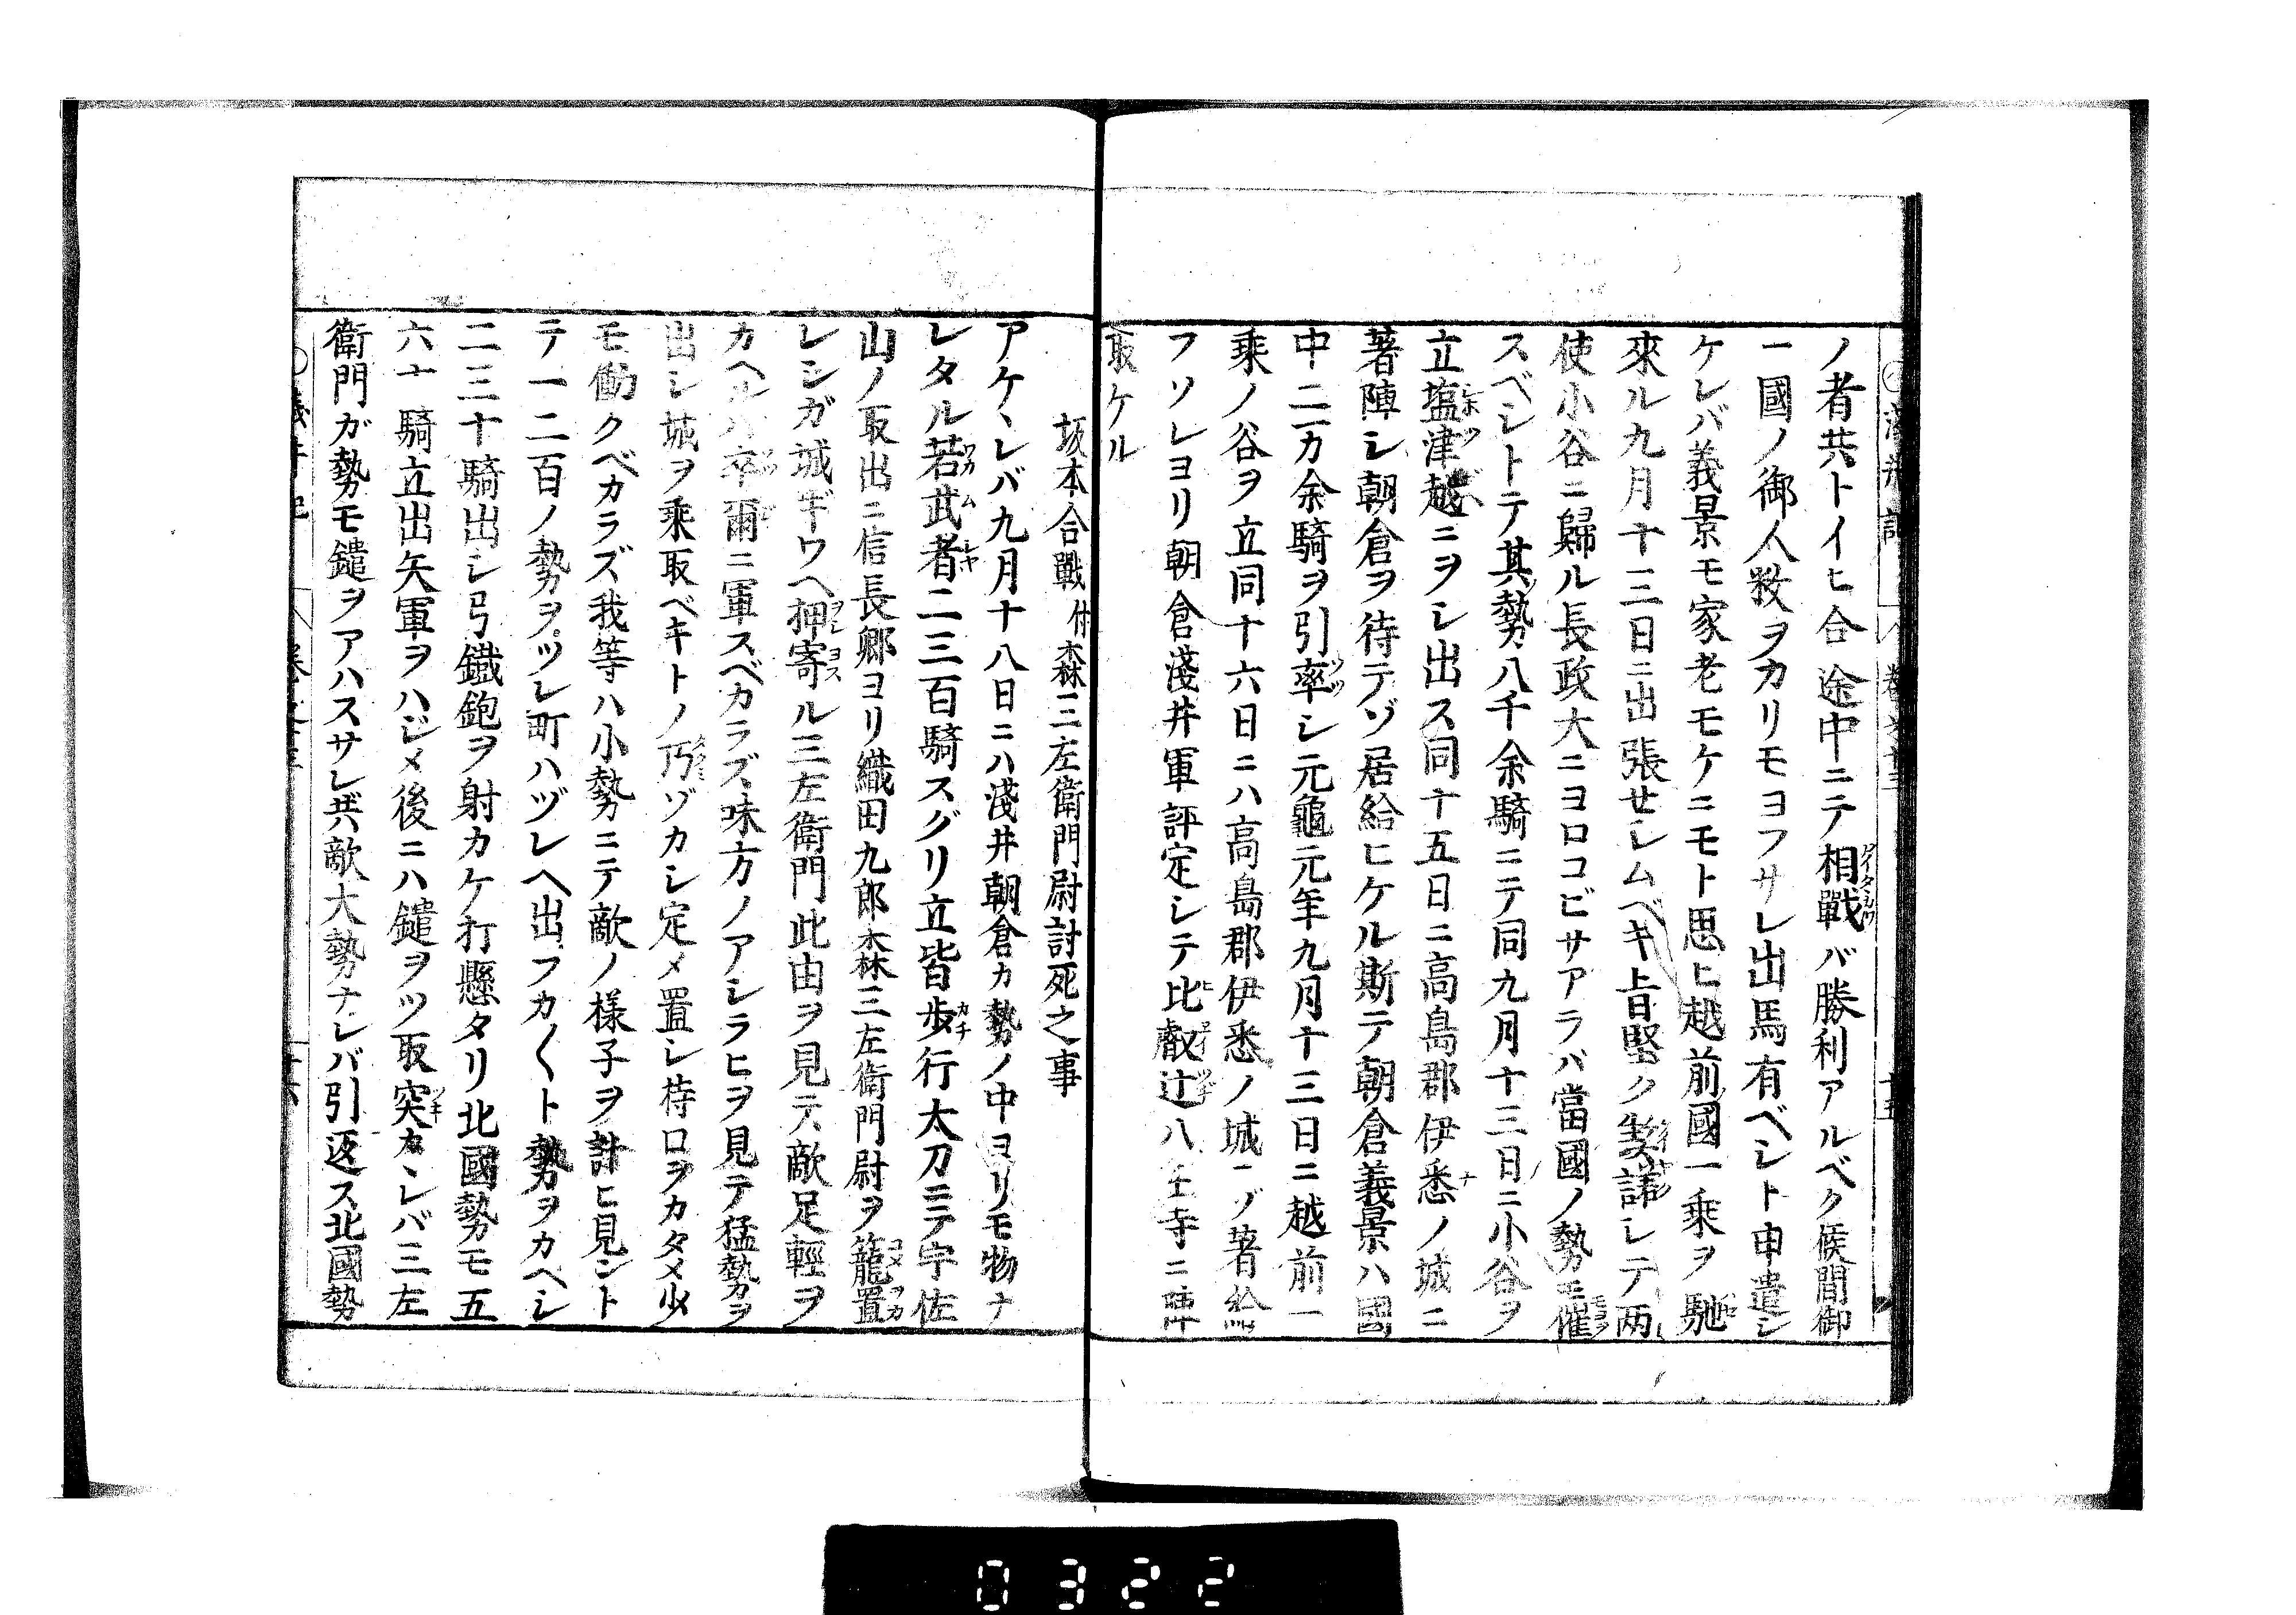 ノ者共トイヒ合途中ニテ相戰バ勝利アルベク候間御
一國ノ御人数ヲカリモヨフサレ出馬有ベレト申遣シ
ケレバ義景モ家老モケニモト思ヒ越前國一乗ヲ馳
來ル九月十三日ニ出張せレムベキ旨堅ク契諾レテ两
使小谷ニ歸ル長政大ニヨロコビサアラバ當國ノ勢モ催
スベレトテ其勢八千余騎ニテ同九月十三日ニ小谷ヲ
立塩津越ニヲレ出ス同十五日ニ高島郡伊悉ノ城ニ
著陣レ朝倉ヲ待テゾ居給ヒケル斯テ朝倉義景ハ國
中二万余騎ヲ引率レ元龜元年九月十三日ニ越前一
乗ノ谷ヲ立同十六日ニハ高島郡伊悉ノ城ニゾ著給
フソレヨリ朝倉淺井軍評定レテ比叡辻八王寺ニ陣
取ケル
坂本合戰付森三左衛門尉討死之事
アケヽレバ九月十八日ニハ淺井朝倉カ勢ノ中ヨリモ物ナ
レタル若武者二三百騎スグリ立皆歩行太刀ニテ宇佐
山ノ取出ニ信長郷ヨリ織田九郎森三左衛門尉ヲ籠置
レシガ城ギワヘ押寄ル三左衛門此由ヲ見テ敵足輕ヲ
カヘルハ卒爾ニ軍スベカラズ味方ノアシラヒヲ見テ猛勢ヲ
出シ城ヲ乗取ベキトノ巧ゾカシ定メ置シ持口ヲカタメ少
モ働クベカラズ我等ハ小勢ニテ敵ノ様子ヲ計ヒ見ント
テ一二百ノ勢ヲツレ町ハヅレヘ出フカ〱ト勢ヲカヘシ
二三十騎出シ弓鐵鉋ヲ射カケ打懸タリ北國勢モ五
六十騎立出矢軍ヲハジメ後ニハ鑓ヲツ取突カヽレバ三左
衛門ガ勢モ鑓ヲアハスサレ𪜈敵大勢ナレバ引返ス北國勢
0322